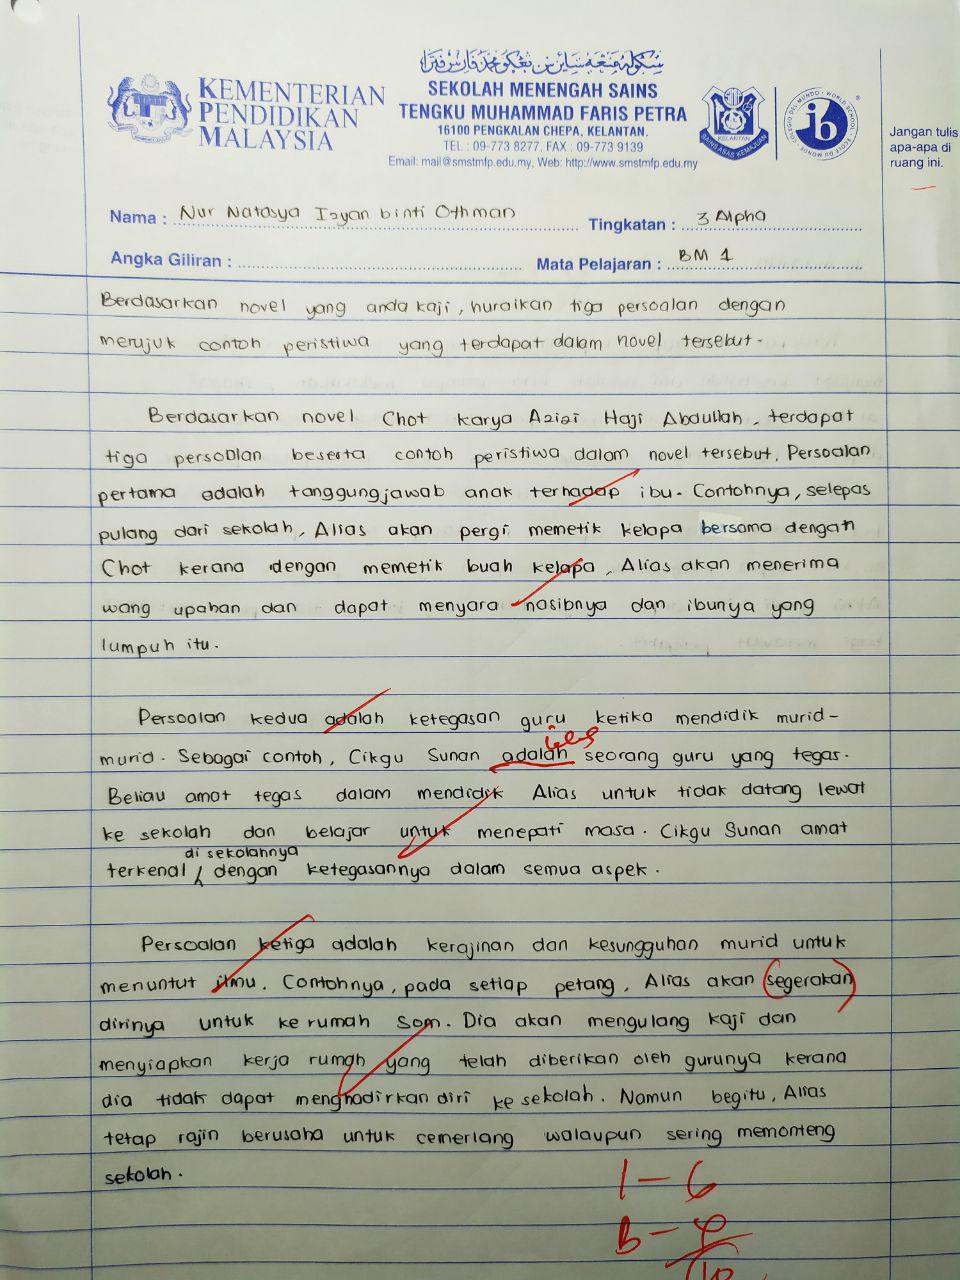 KEMENTERIAN
PENDIDIKAN
MALAYSIA
SEKOLAH MENENGAH SAINS
TENGKU MUHAMMAD FARIS PETRA
16100 PENGKALAN CHEPA, KELANTAN.
TEL : 09-773 8277, FAX : 09-773 9139
Email: mail@smstmfp.edu.my, Web: http://www.smstmfp.edu.my
KELANTAN
SAINS ASAS KEMAJUAN
ib
Jangan tulis
apa-apa di
ruang ini.
Nama : Nur Natasya Izyan binti Othman
Tingkatan : 3 Alpha
Angka Giliran :
Mata Pelajaran : BM 1
Berdasarkan novel yang anda kaji, huraikan tiga persoalan dengan
merujuk contoh peristiwa yang terdapat dalam novel tersebut.
Berdasarkan novel Chot karya Azizi Haji Abdullah, terdapat
tiga persoalan beserta contoh peristiwa dalam novel tersebut. Persoalan
pertama adalah tanggungjawab anak terhadap ibu. Contohnya, selepas
pulang dari sekolah, Alias akan pergi memetik kelapa bersama dengan
Chot kerana dengan memetik buah kelapa, Alias akan menerima
wang upahan dan dapat menyara nasibnya dan ibunya yang
lumpuh itu.
Persoalan kedua adalah ketegasan guru ketika mendidik murid-
murid. Sebagai contoh, Cikgu Sunan adalah seorang guru yang tegas.
Beliau amat tegas dalam mendidik Alias untuk tidak datang lewat
ke sekolah dan belajar untuk menepati masa. Cikgu Sunan amat
di sekolahnya
terkenal dengan ketegasannya dalam semua aspek.
Persoalan ketiga adalah kerajinan dan kesungguhan murid untuk
menuntut ilmu. Contohnya, pada setiap petang, Alias akan segerakan
dirinya untuk ke rumah Som. Dia akan mengulang kaji dan
menyiapkan kerja rumah yang telah diberikan oleh gurunya kerana
dia tidak dapat menghadirkan diri ke sekolah. Namun begitu, Alias
tetap rajin berusaha untuk cemerlang walaupun sering memonteng
sekolah.
1 - 6